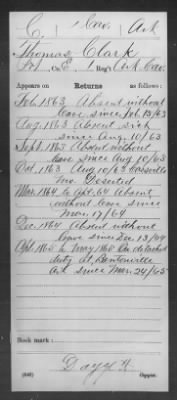 C. 1 Cav. Ark
Thomas Clark
Co. E, 1 Reg't Ark Cav.
Appears on Returns as follows:
Feb. 1863 Absent without
leave since Feb. 13/63
Aug. 1863 Absent sick
since Aug. 10/63
Sept. 1863 Absent without
leave since Aug 10/63
Oct. 1863 Aug 10/63 Cassville
Mo. Deserted
Mar. 1864 to Apr. 64 Absent
without leave since
Mar. 17/64
Dec. 1864 Absent without
leave since Dec. 13/64
Apl. 1865 to May 1865 On detached
duty at Bentonville
Ark since Mar. 24/65
Book mark:
(546) Copyist.